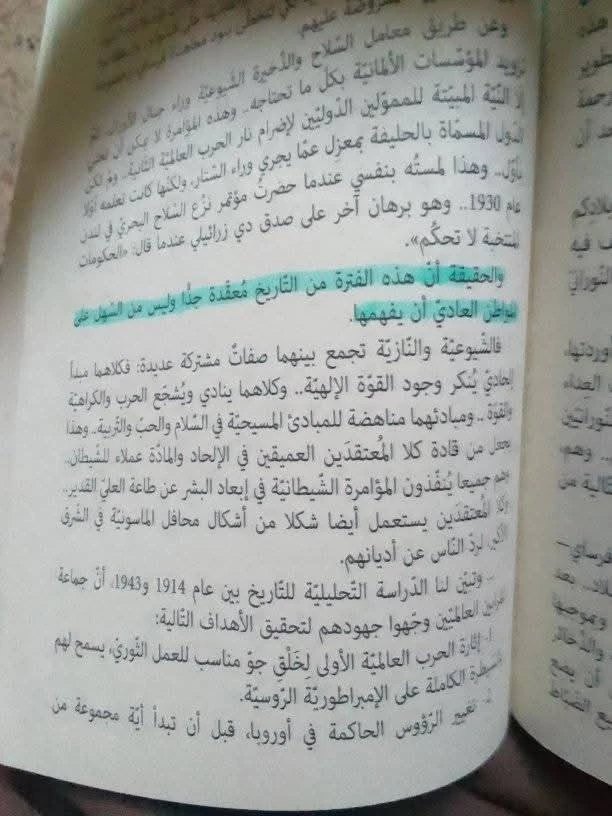 المفروضة عليهم.
وعن طريق معامل السّلاح والذّخيرة الشّيوعيّة وراء جبال الأورال، تمّ
تزويد المؤسّسات الألمانيّة بكلّ ما تحتاجه.. وهذه المؤامرة لا يمكن أن تعني
إلّا النّيّة المبيّتة للمموّلين الدّوليّين لإضرام نار الحرب العالميّة الثّانية.. ولم تكن
الدّول المسمّاة بالحليفة بمعزل عمّا يجري وراء السّتار، ولكنّها كانت تعلمه أوّلا
بأوّل.. وهذا لمسته بنفسي عندما حضرتُ مؤتمر نزْع السّلاح البحريّ في لندن
عام 1930.. وهو برهان آخر على صدق دي زرائيلي عندما قال: «الحكومات
المنتخبة لا تحكُم».
والحقيقة أنّ هذه الفترة من التّاريخ مُعقّدة جدًّا وليس من السّهل على
المواطن العاديّ أن يفهمها.
فالشّيوعيّة والنّازيّة تجمع بينهما صفاتٌ مشتركة عديدة: فكلاهما مبدأ
إلحاديّ يُنكر وجود القوّة الإلهيّة.. وكلاهما ينادي ويُشجّع الحرب والكراهيّة
والقوّة.. ومبادئهما مناهضة للمبادئ المسيحيّة في السّلام والحبّ والتّربية.. وهذا
يجعل من قادة كلا المُعتقدَين العميقين في الإلحاد والمادّة عملاء للشّيطان..
وهم جميعا يُنفّذون المؤامرة الشّيطانيّة في إبعاد البشر عن طاعة العليّ القدير..
وكلا المُعتقدَين يستعمل أيضا شكلا من أشكال محافل الماسونيّة في الشّرق
الأكبر لردّ النّاس عن أديانهم.
وتبيّن لنا الدّراسة التّحليليّة للتّاريخ بين عام 1914 و1943، أنّ جماعة
العالميّين وجّهوا جهودهم لتحقيق الأهداف التّالية:
1- إثارة الحرب العالميّة الأولى لِخَلْقِ جوّ مناسب للعمل الثّوريّ، يسمح لهم
بالسّيطرة الكاملة على الإمبراطوريّة الرّوسيّة.
2- تغيير الرّؤوس الحاكمة في أوروبا، قبل أن تبدأ أيّة مجموعة من